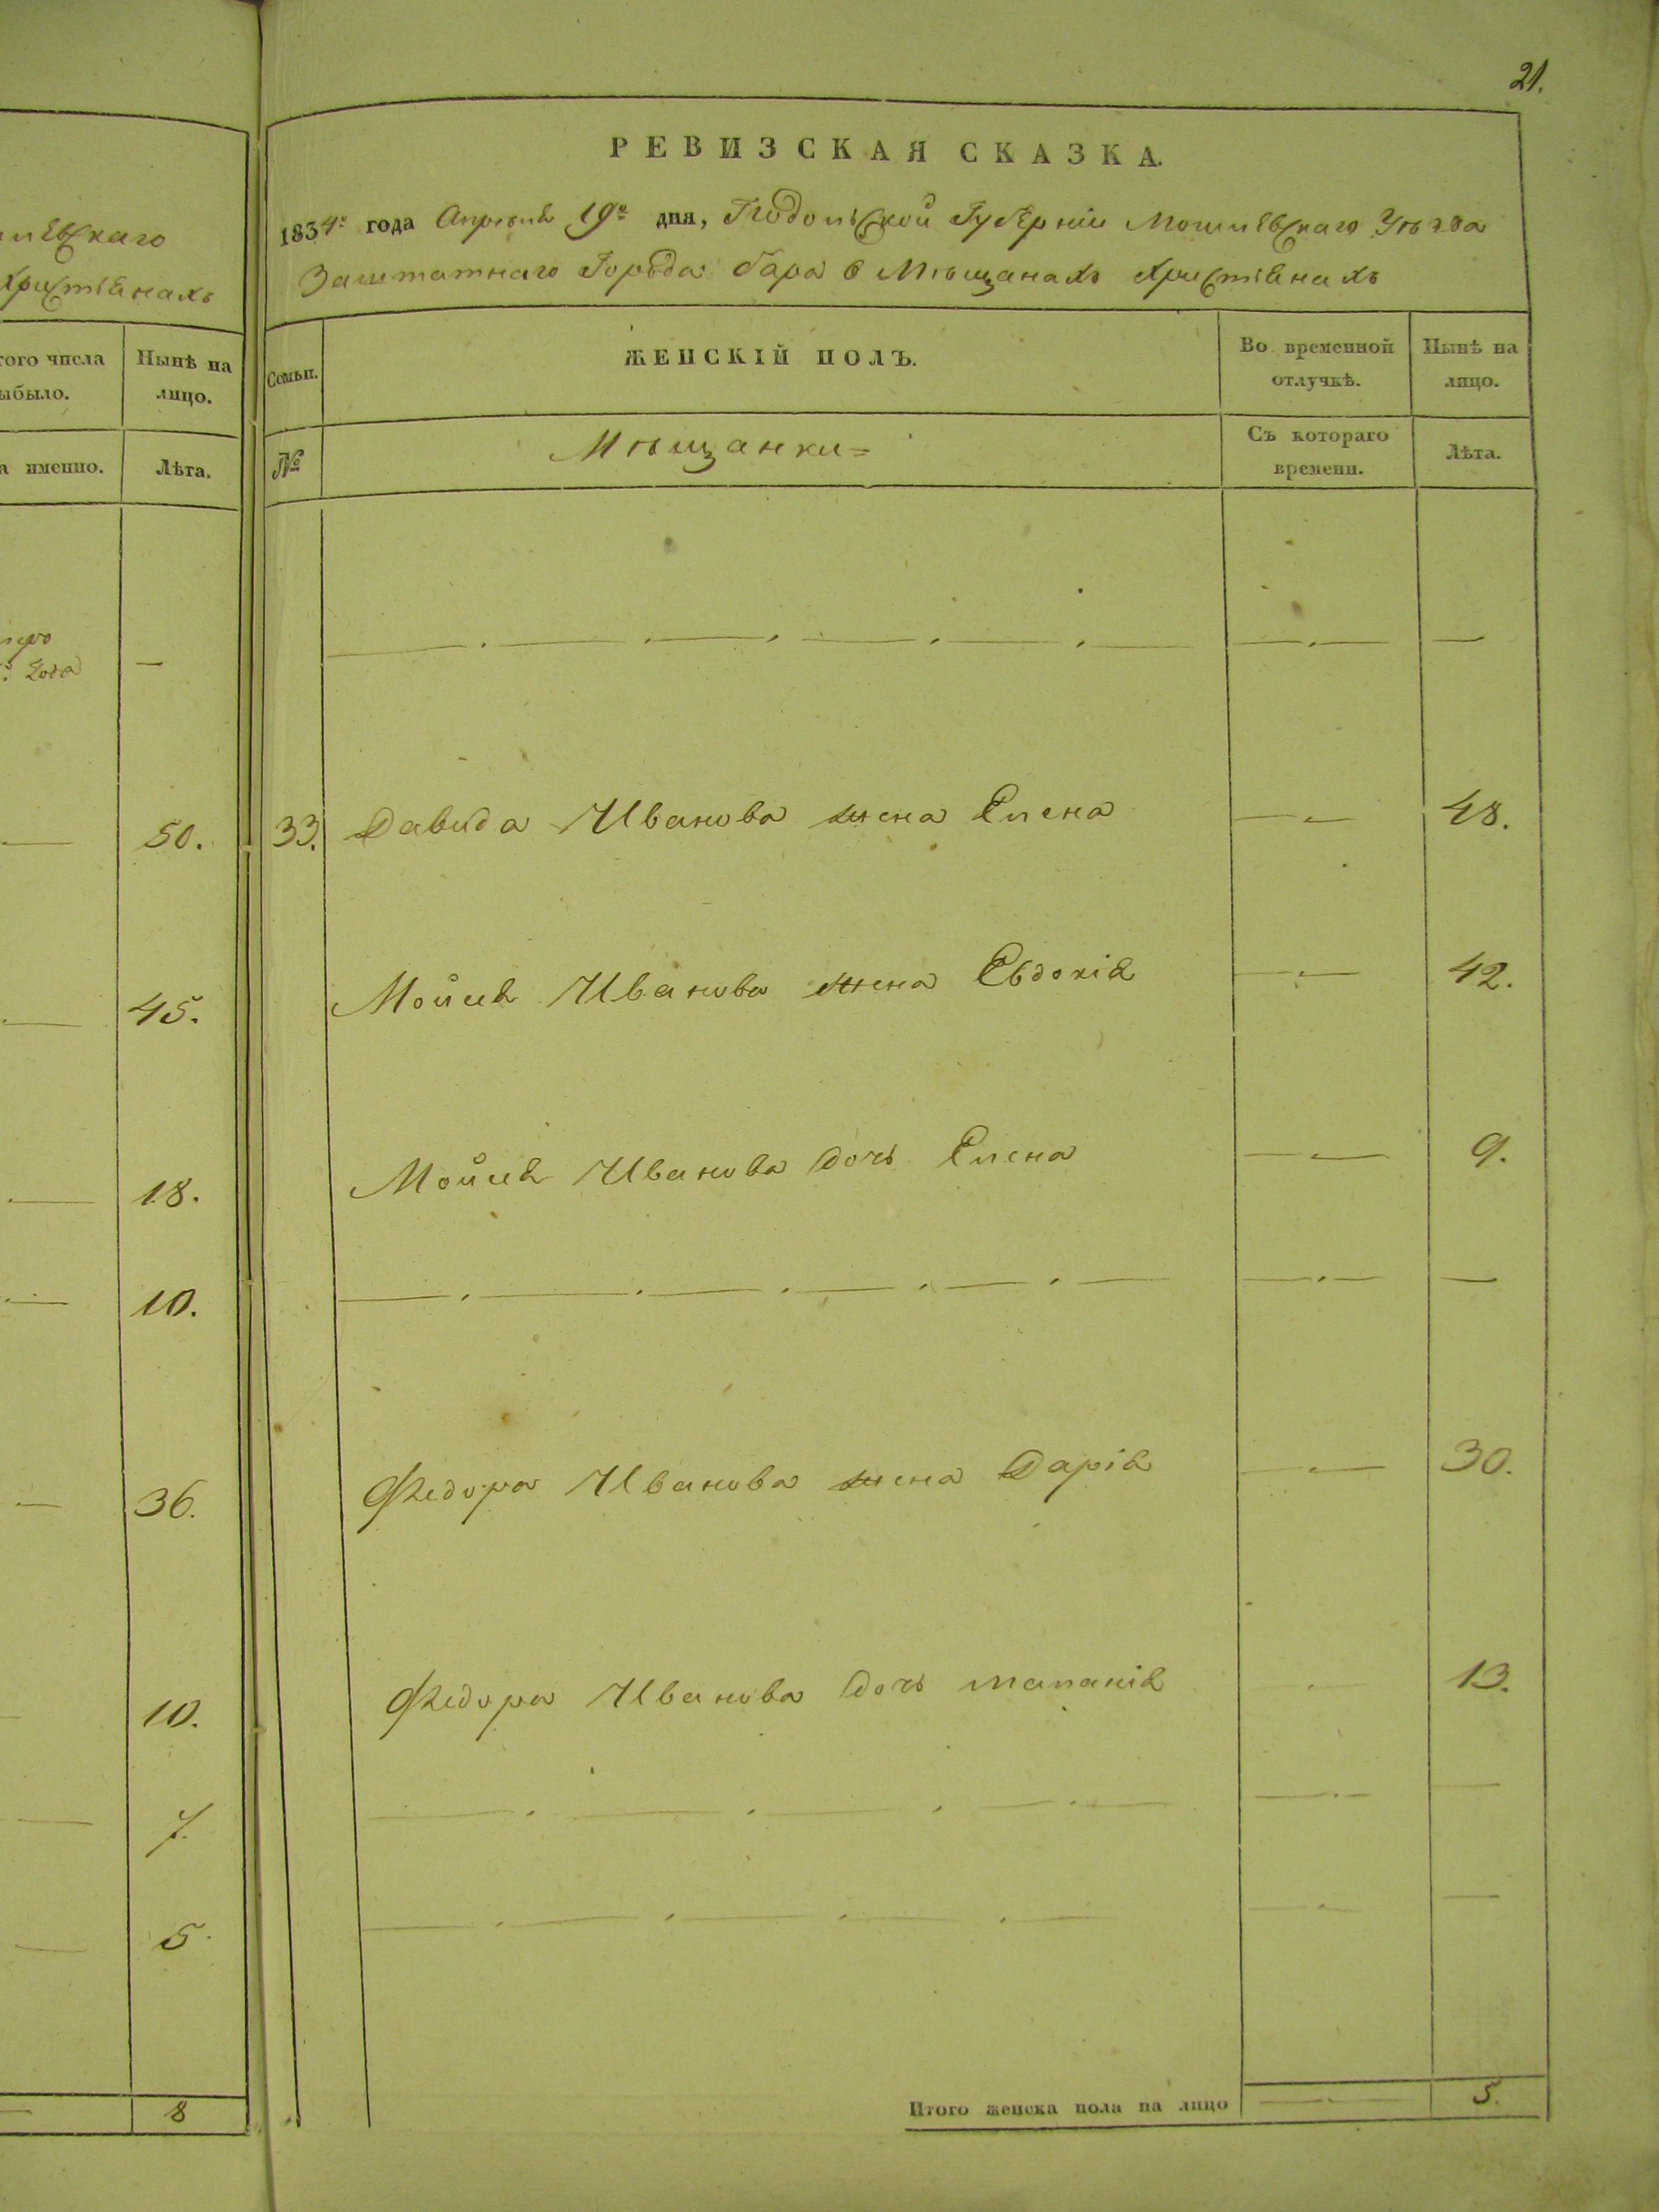 21.
РЕВИЗСКАЯ СКАЗКА.
1834го года Апреля 19го дня, Подольской Губерніи Могилевскаго Уѣзда
Заштатнаго Города Бара о Мѣщанахъ Христіянахъ
Христіянахъ
того числа
выбыло.
Нынѣ на
лицо.
Семьи.
ЖЕНСКІЙ ПОЛЪ.
Во временной
отлучкѣ.
Нынѣ на
лицо.
а именно.
Лѣта.
№
Мѣщанки
Съ котораго
времени.
Лѣта.
года
50. 33. Давида Иванова жена Елена 48.
45. Мойсея Иванова жена Евдокія 42.
18. Мойсея Иванова дочь Елена 9.
10.
36. Федора Иванова жена Дарія 30.
10. Федора Иванова дочь Маланія 13.
7.
5.
8 Итого женска пола на лицо 5.